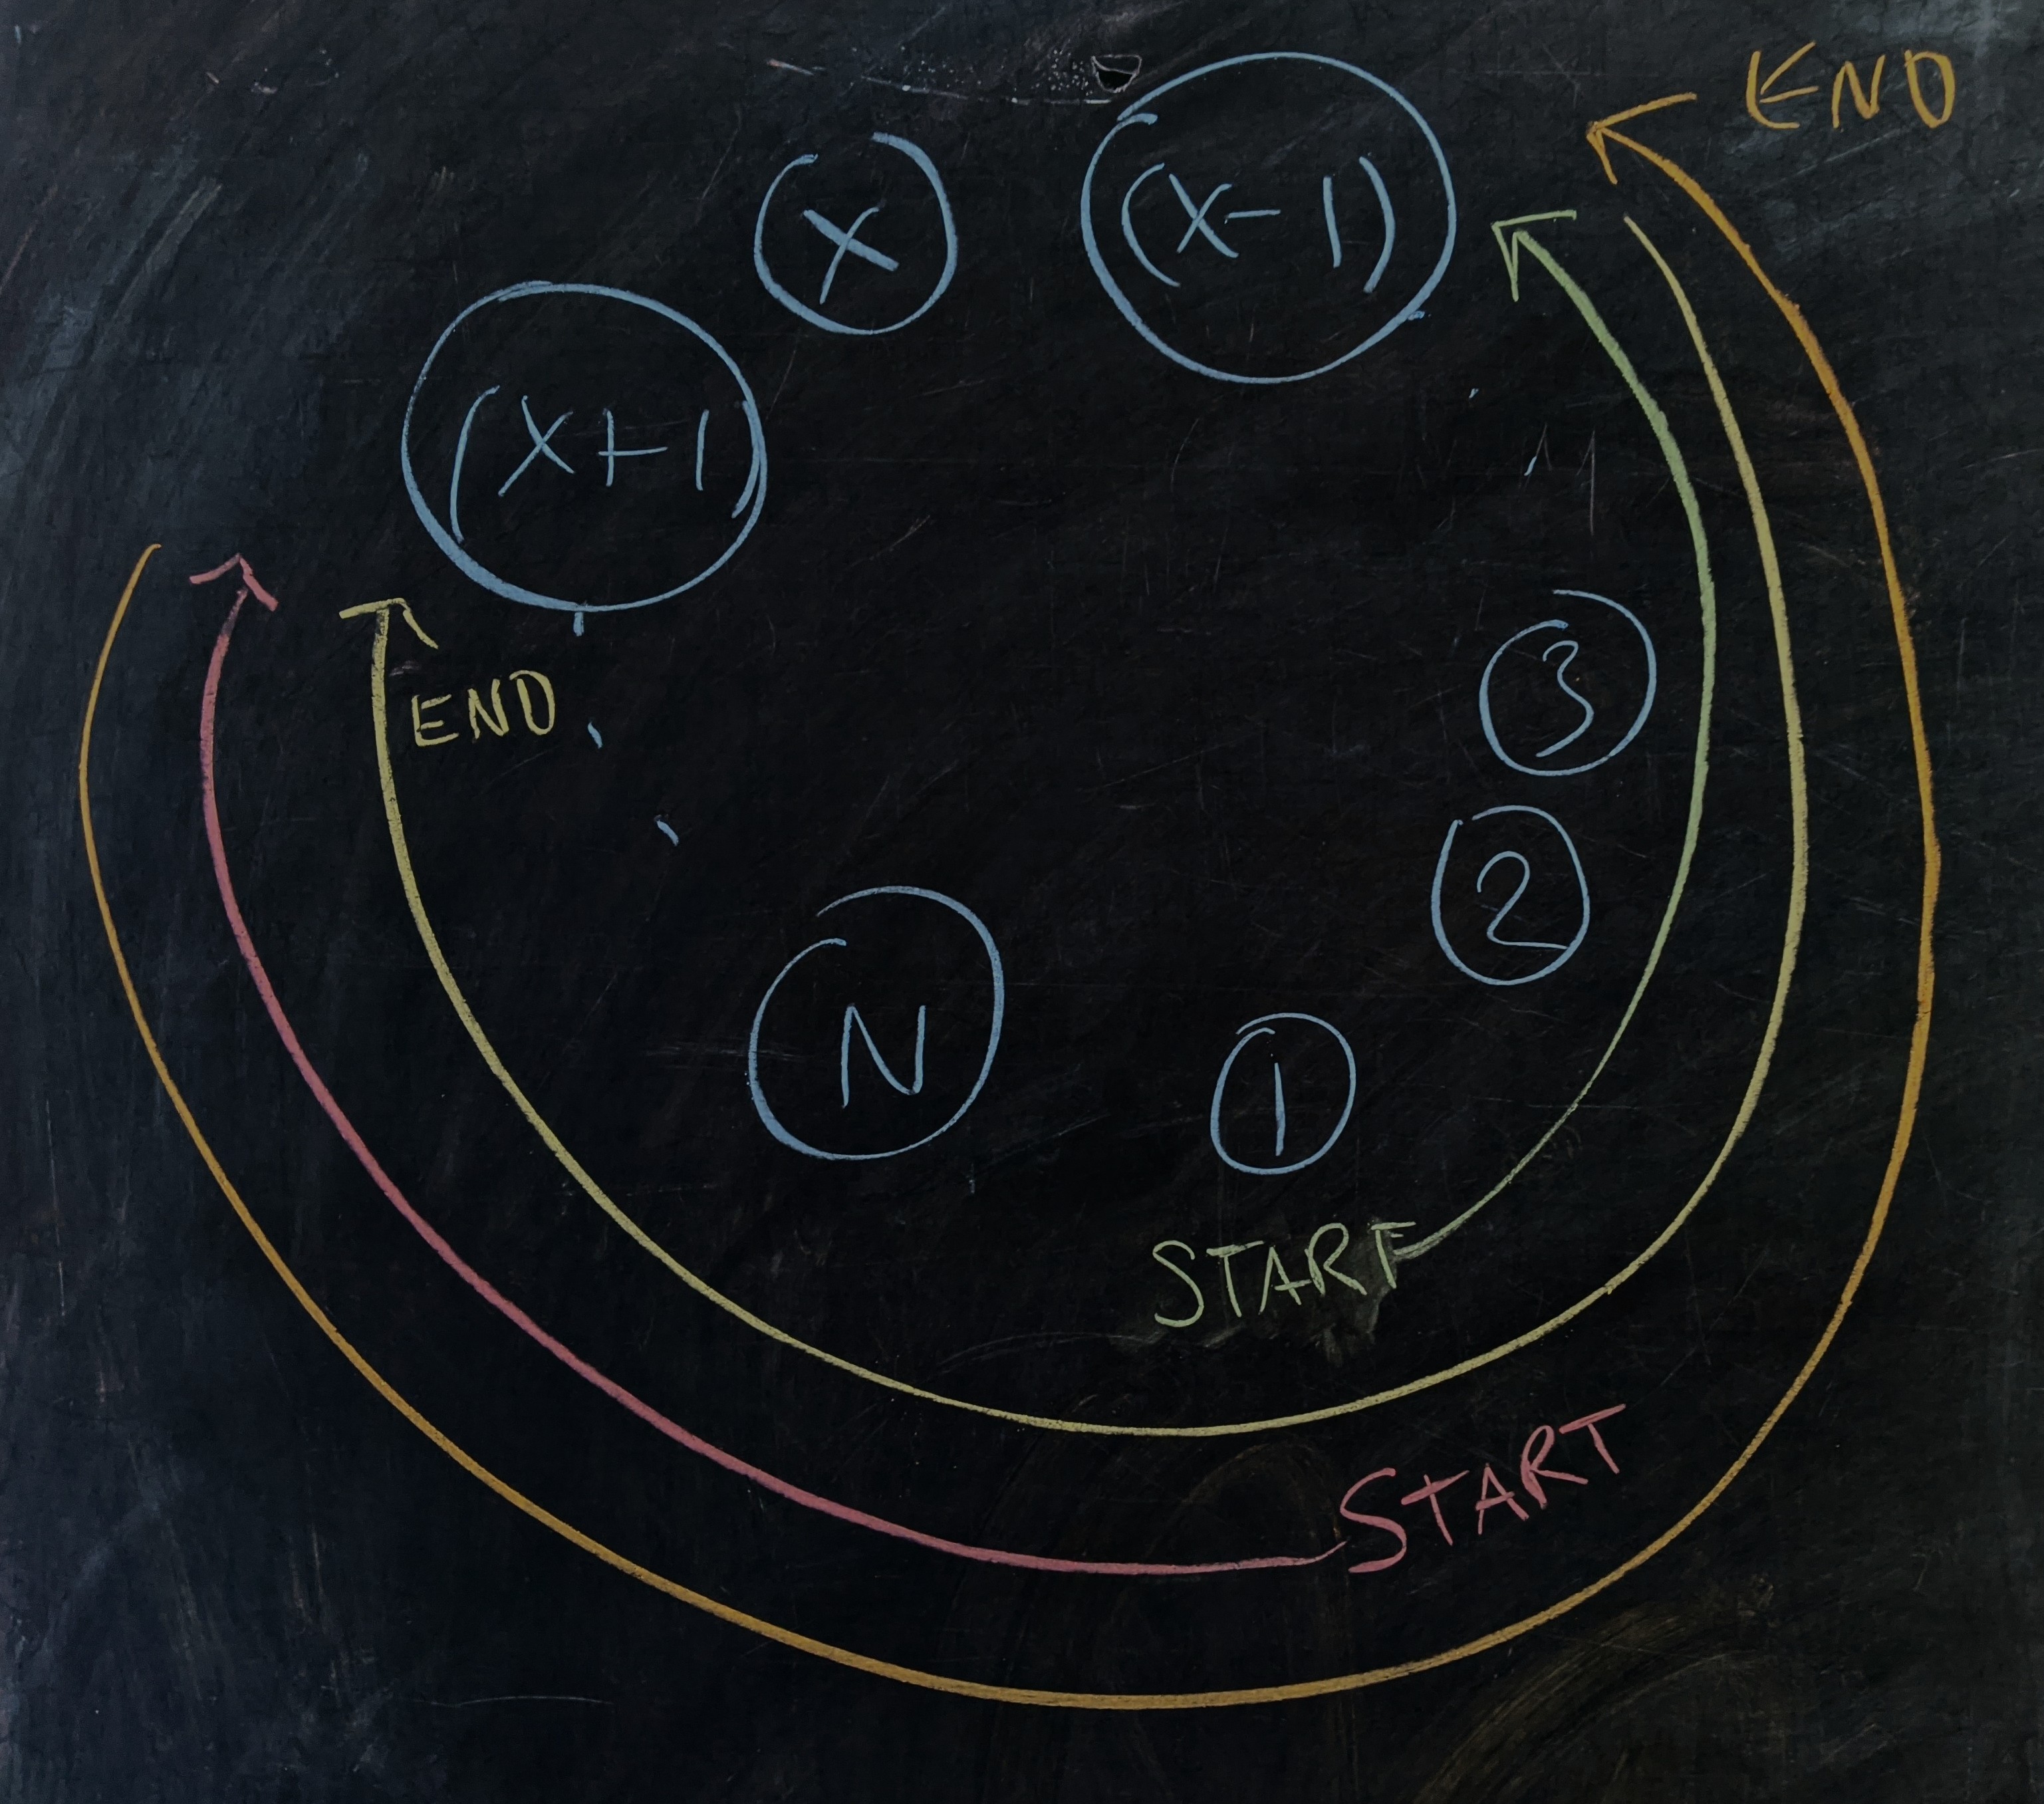 END
X
(X-1)
(X+1)
3
END
2
N
1
START
START